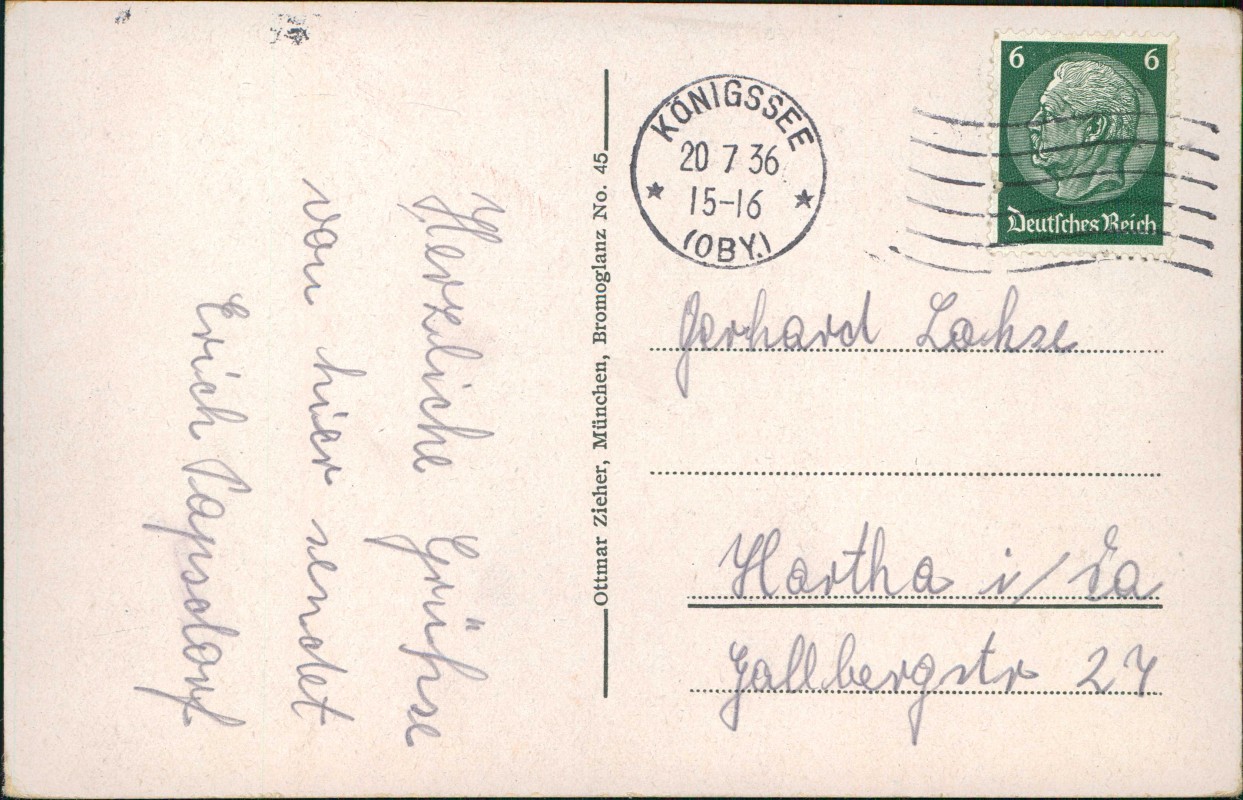 Herzliche Grüße
von hier sendet
Erich Papsdorf
Ottmar Zieher, München, Bromoglanz No. 45
KÖNIGSSEE
20 7 36
15-16
(OBY.)
6 6
Deutsches Reich
Gerhard Lohse
Hartha i/Sa
Gallbergstr 27